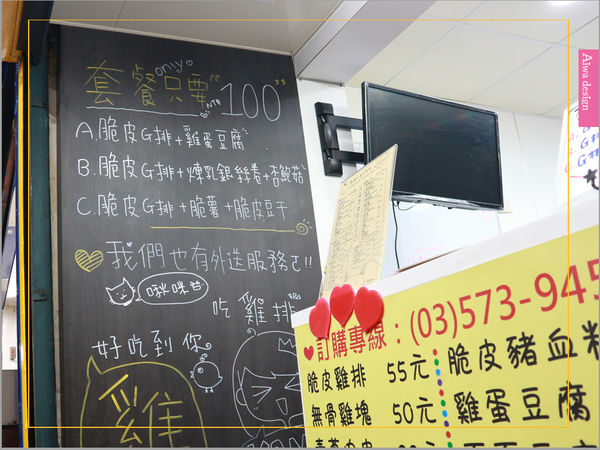 only
套餐只要"100"
NT$
A.脆皮G排+雞蛋豆腐
B.脆皮G排+煉乳銀絲卷+杏鮑菇
C.脆皮G排+脆薯+脆皮豆干
我們也有外送服務ㄛ!!
啾咪君
吃雞排
好吃到你
雞
Aiwa design
訂購專線:(03)573-945
脆皮雞排 55元
無骨雞塊 50元
脆皮豬血糕
雞蛋豆腐